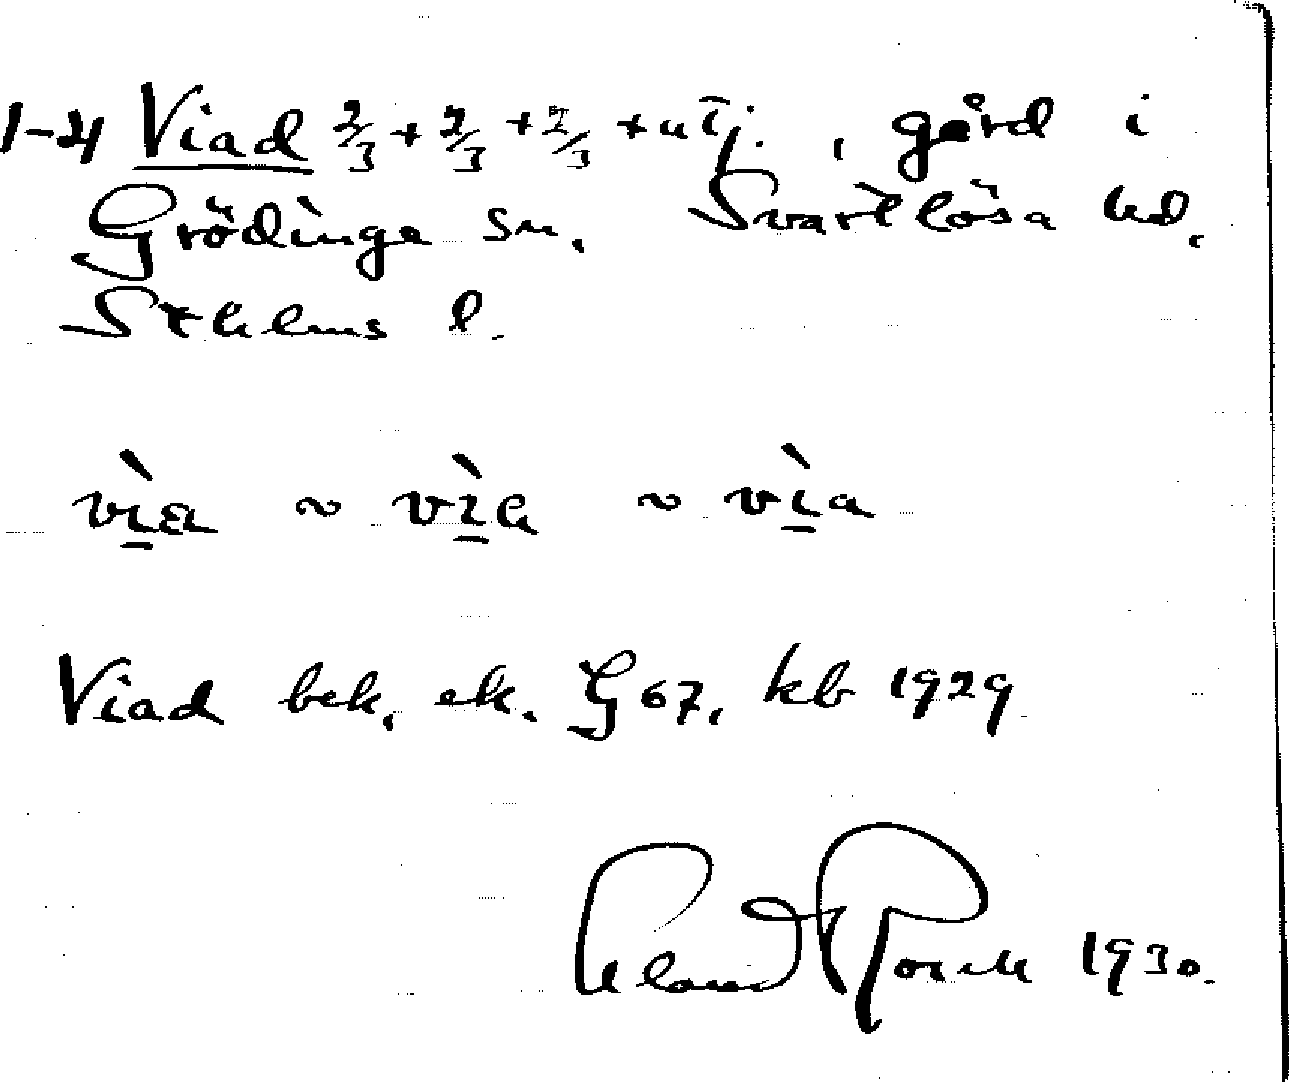 1-4 Viad 2/3 + 2/3 + 2/3 + utj. , gård i
Grödinge sn. Svartlösa hd.
Sthlms l.
vì̲a ~ vì̲a ~ vì̲a
Viad bek. ek. G 67, kb 1929
1930.